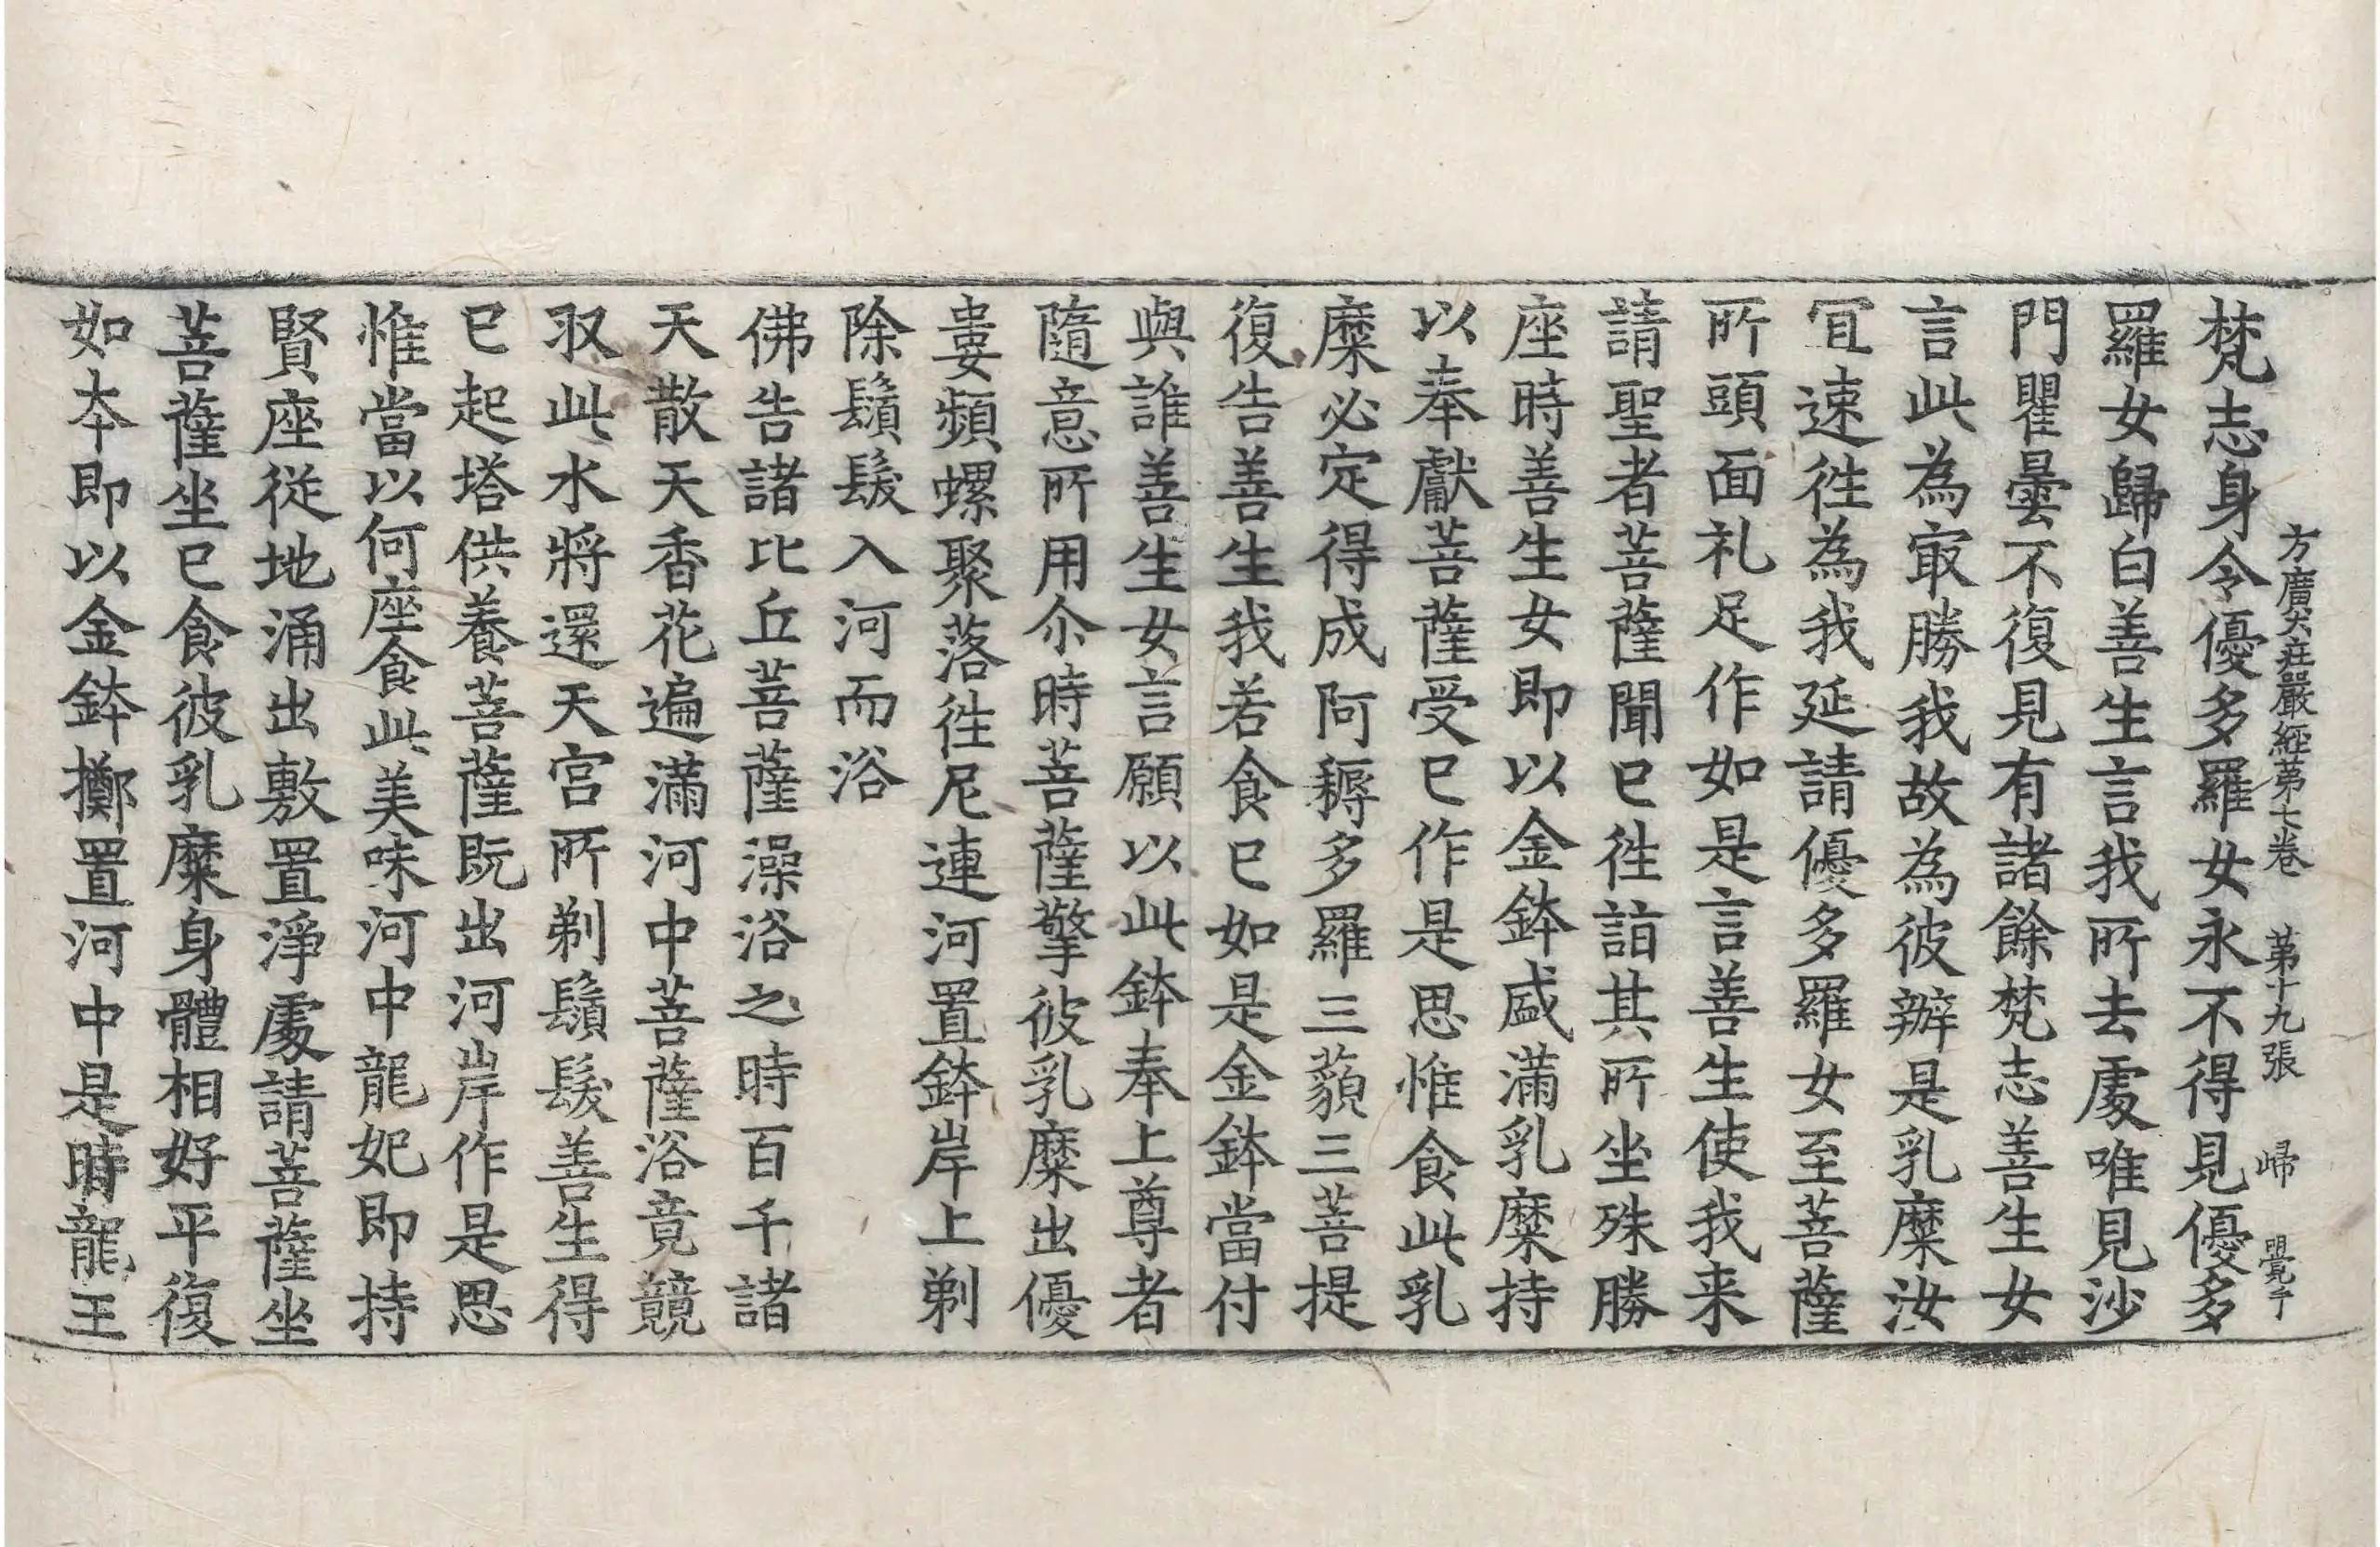 方廣大莊嚴經第七卷 第十九張 歸 覺子
梵志身令優多羅女永不得見優多
羅女歸白善生言我所去處唯見沙
門瞿曇不復見有諸餘梵志善生女
言此為㝡勝我故為彼辦是乳糜汝
冝速徃為我延請優多羅女至菩薩
所頭面礼足作如是言善生使我来
請聖者菩薩聞已徃詣其所坐殊勝
座時善生女即以金鉢盛滿乳糜持
以奉獻菩薩受已作是思惟食此乳
糜必定得成阿耨多羅三藐三菩提
復告善生我若食已如是金鉢當付
與誰善生女言願以此鉢奉上尊者
隨意所用尒時菩薩擎彼乳糜出優
婁頻螺聚落徃尼連河置鉢岸上剃
除鬚髮入河而浴
佛告諸比丘菩薩澡浴之時百千諸
天散天香花遍滿河中菩薩浴竟競
取此水將還天宮所剃鬚髮善生得
已起塔供養菩薩既出河岸作是思
惟當以何座食此美味河中龍妃即持
賢座從地涌出敷置淨處請菩薩坐
菩薩坐已食彼乳糜身體相好平復
如本即以金鉢擲置河中是時龍王